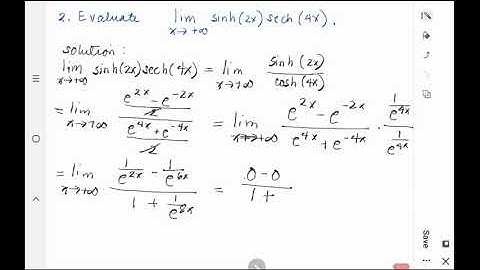 2. Evaluate lim x→+∞ sinh(2x) sech(4x).
solution:
lim x→+∞ sinh(2x) sech(4x) = lim x→+∞ sinh(2x)/cosh(4x)
= lim x→+∞ ((e^{2x} - e^{-2x})/2)/((e^{4x} + e^{-4x})/2) = lim x→+∞ (e^{2x} - e^{-2x})/(e^{4x} + e^{-4x}) · (1/e^{4x})/(1/e^{4x})
= lim x→+∞ (1/e^{2x} - 1/e^{6x})/(1 + 1/e^{8x}) = (0-0)/(1+
Save